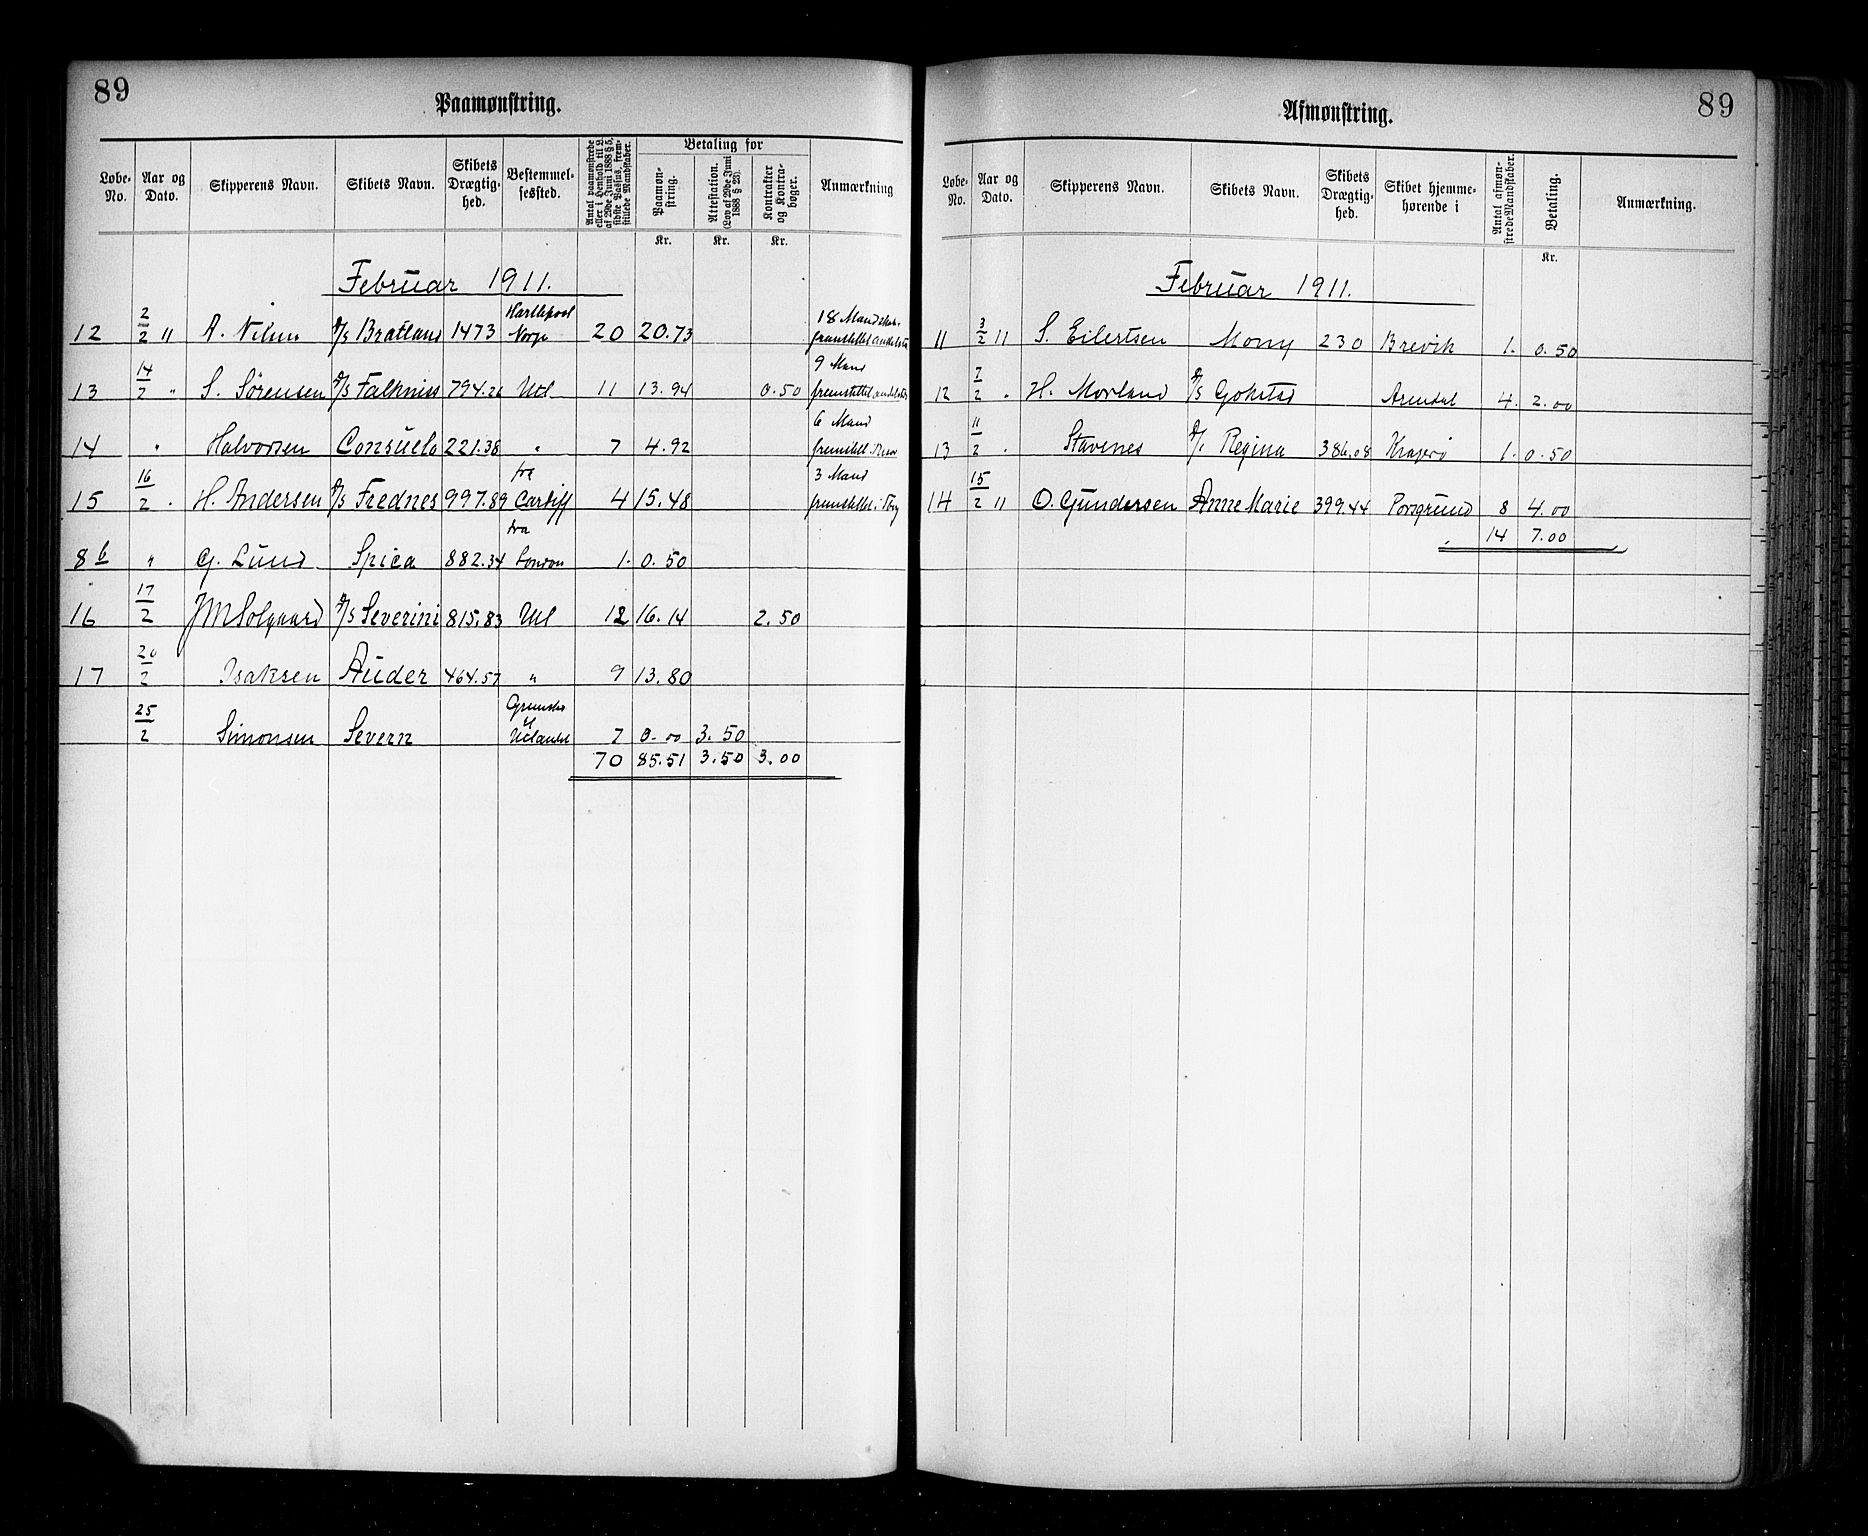 89
Paamønstring.
Løbe-No. Aar og Dato. Skipperens Navn. Skibets Navn. Skibets Drægtig-hed. Bestemmel-sessted. Antal paamønstrede eller i Henhold til L. af 29de Juni 1888 § 5, sidste Passus, frem-stillede Mandskaber. Betaling for Paamøn-string. Attestation. (Lov af 29de Juni 1888 § 23). Kontrakter og Kontra-bøger. Anmærkning
Kr. Kr. Kr.
Februar 1911.
Hartlepool 18 Mandskab.
12 2/2 11 A. Nilsen S/S Bratland 1473 Norge 20 20.73 fremstillet andetsteds
9 Mand
13 14/2 " S. Sørensen S/S Falkniss 794.26 Utl 11 13.94 0.50 fremstillet andetsteds
6 Mand
14 " Halvorsen Consuelo 221.38 " 7 4.92
fra 3 Mand
15 16/2 " H. Andersen S/S Frednes 997.89 Cardiff 4 15.48 fremstillet i
fra
8b " G. Lund Spica 882.34 London 1. 0.50
16 17/2 JM Solgaard S/S Severini 815.83 Utl 12 16.14 2.50
17 20/2 Isaksen Auder 464.57 " 9 13.80
til
25/2 Simonsen Severn Utlandet 7 0.00 3.50
70 85.51 3.50 3.00
89
Afmønstring.
Løbe-No. Aar og Dato. Skipperens Navn. Skibets Navn. Skibets Drægtig-hed. Skibet hjemme-hørende i Antal afmøn-strede Mandskaber. Betaling. Anmærkning.
Kr.
Februar 1911.
11 3/2 11 S. Eilertsen Mony 230 Brevik 1. 0.50
12 7/2 " H. Morland S/S Gokstad Arendal 4. 2.00
13 11/2 " Stavenes S/S Regina 386.08 Kragerø 1. 0.50
14 15/2 11 O. Gundersen Anne Marie 399.44 Porsgrund 8 4.00
14 7.00